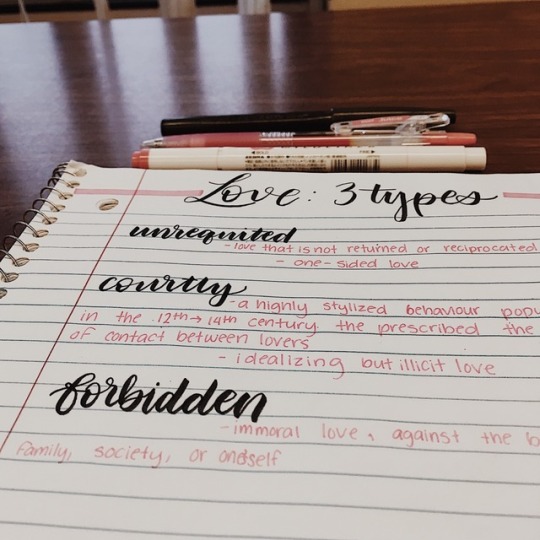 Love: 3 types
unrequited
- love that is not returned or reciprocated
- one-sided love
courtly
- a highly stylized behaviour popu
in the 12th → 14th century. the prescribed the
of contact between lovers
- idealizing but illicit love
forbidden
- immoral love, against the
family, society, or onesself